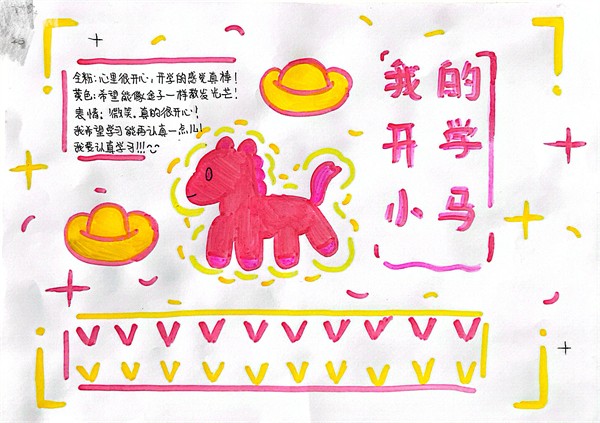 我的
开学
小马
全粉:心里很开心,开学的感觉真棒!
黄色:希望能像金子一样散发光芒!
表情:微笑.真的很开心!
我希望学习能再认真一点儿!
我要认真学习!!!